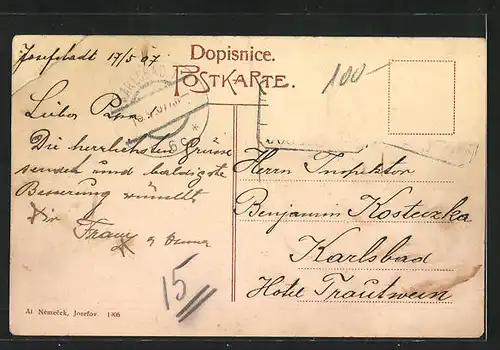 Josefstadt 17/5 07
Dopisnice.
POSTKARTE.
100-
KARLSBAD
Lieber Papa
Die herrlichsten Grüsse
senden und baldigste
Besserung wünscht
Dir
Franz
Herrn Inspektor
Benjamin Kosteczka
Karlsbad
Hotel Trautwein
15
Al. Němeček, Josefov. 1906